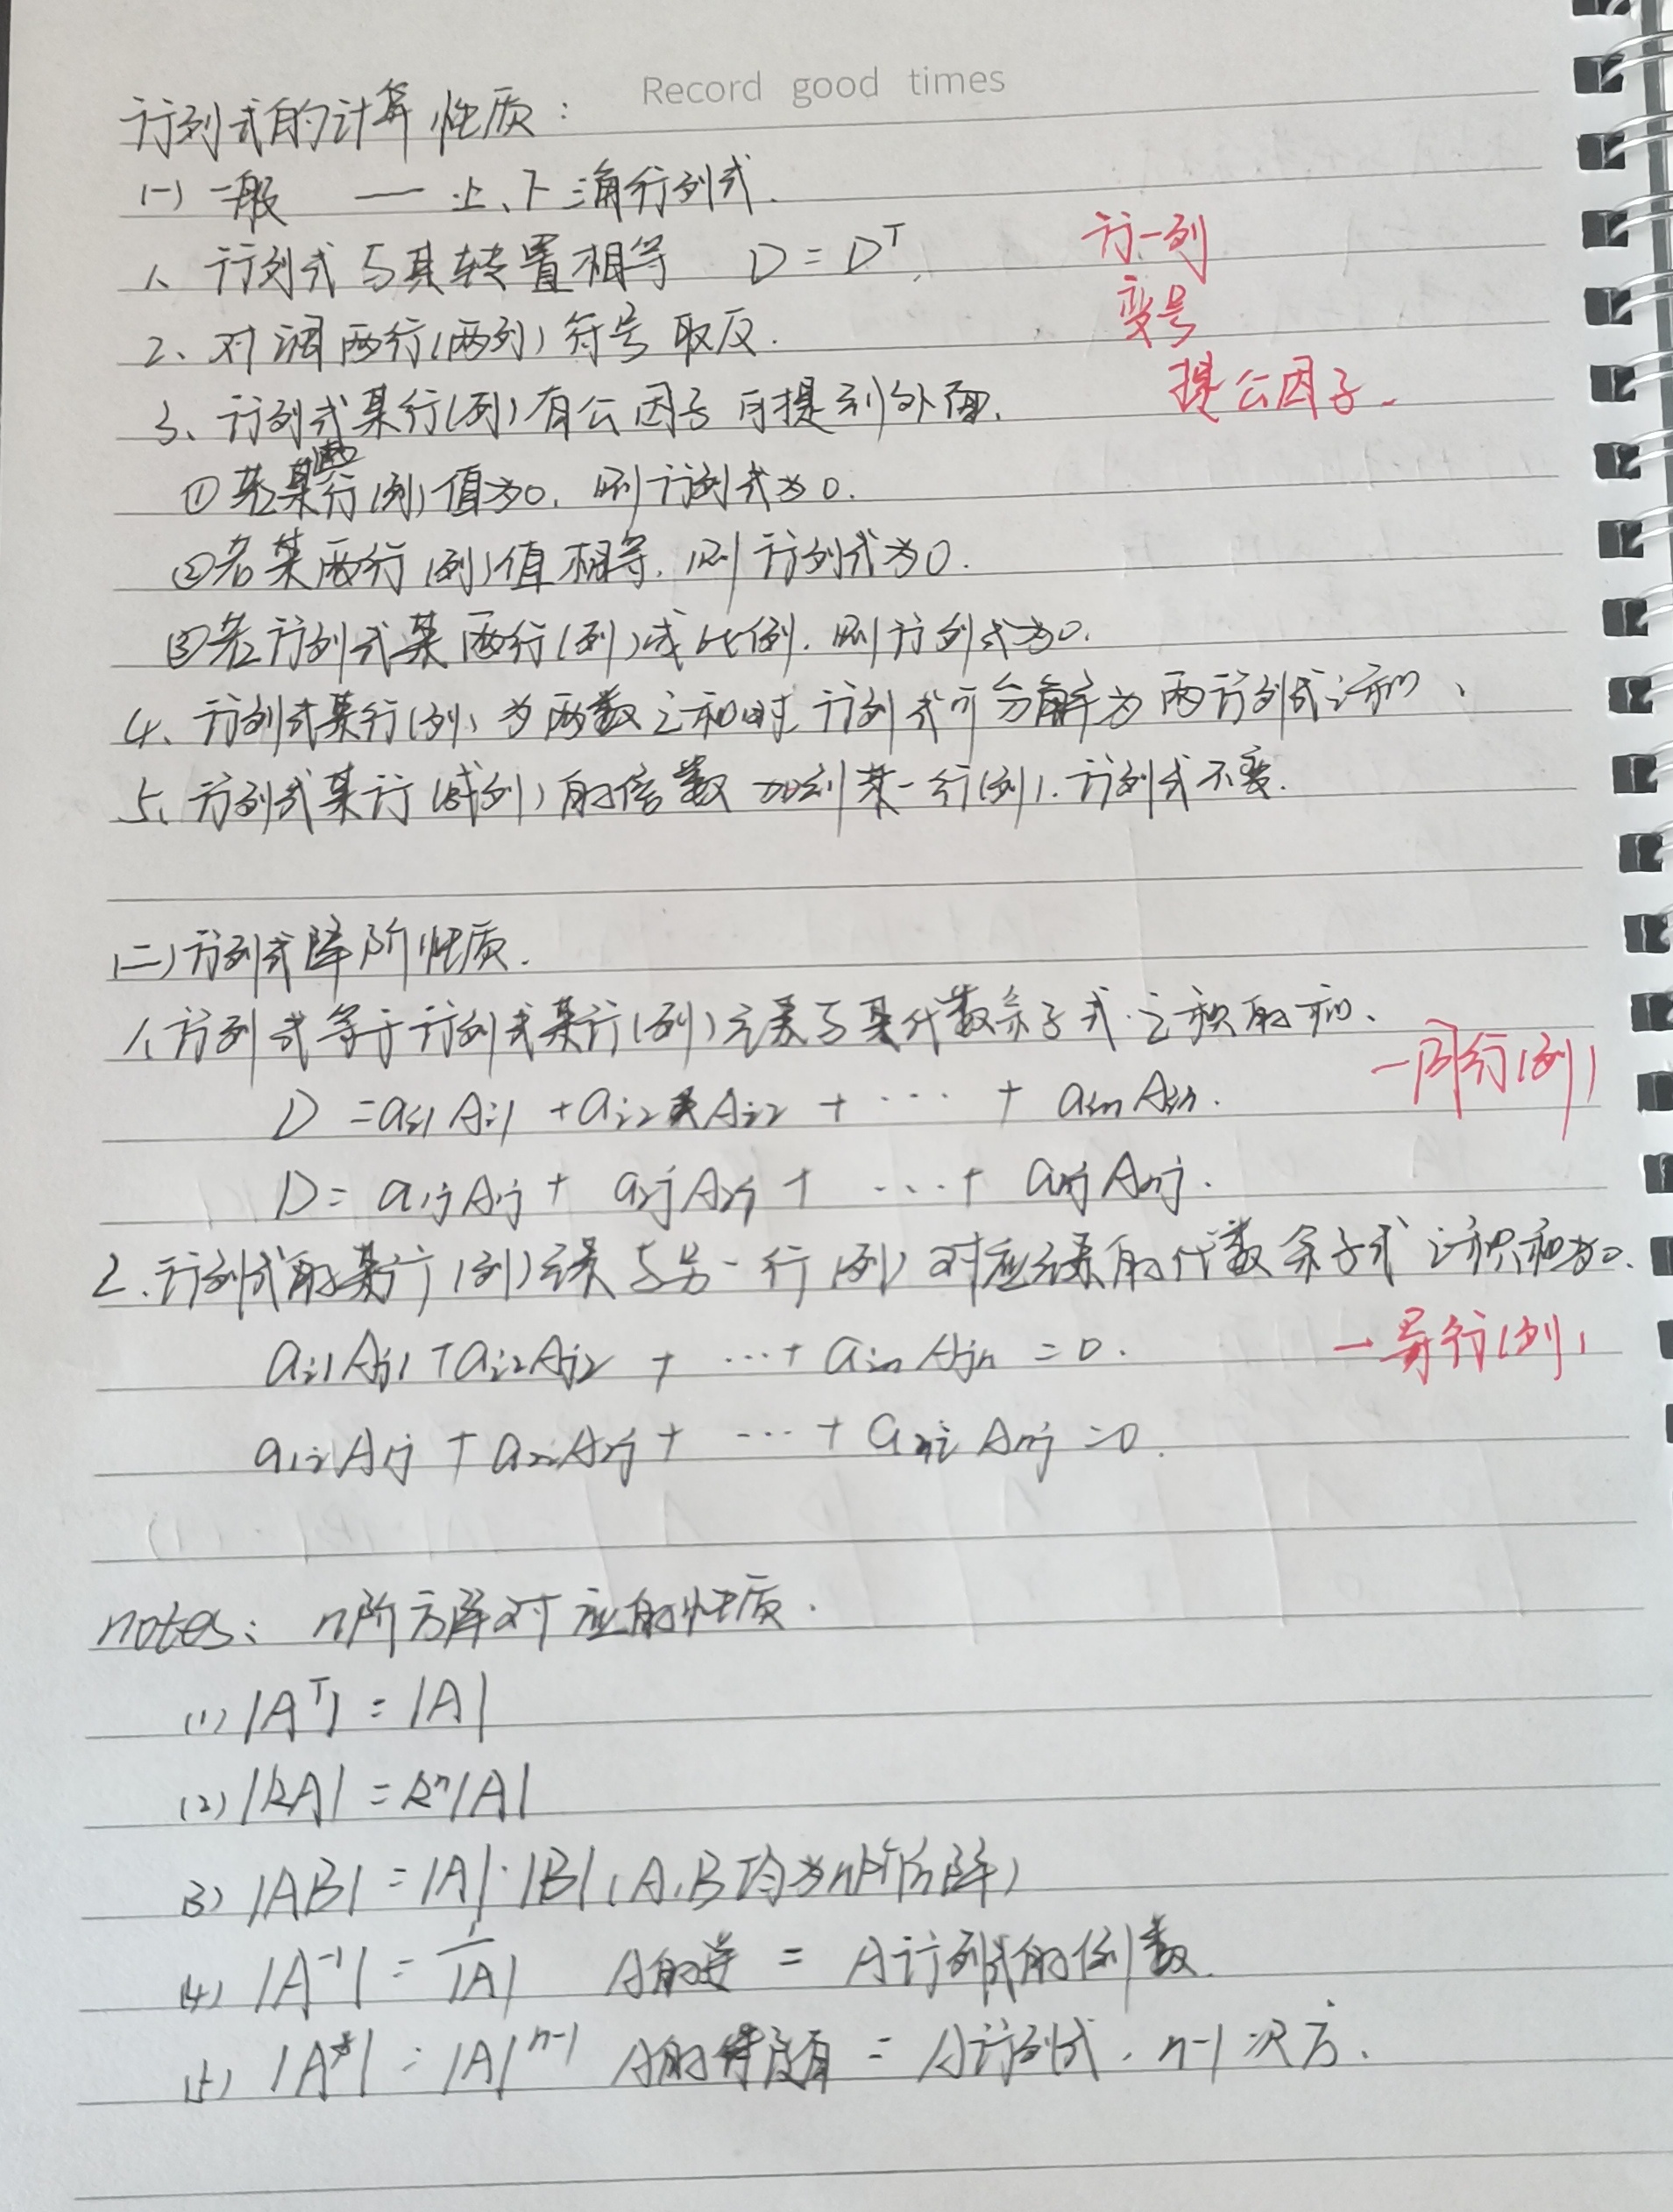 Record good times
行列式的计算性质:
(一) 一般 — 上、下三角行列式.
1、行列式与其转置相等 D = Dᵀ. 行—列
2、对调两行(两列)符号取反. 变号
3、行列式某行(列)有公因子可提到外面. 提公因子.
①若某行(列)值为0, 则行列式为0.
②若某两行(列)值相等, 则行列式为0.
③若行列式某两行(列)成比例, 则行列式为0.
4、行列式某行(列)为两数之和时 行列式可分解为两行列式之和、
5、行列式某行(或列)的倍数加到某一行(列), 行列式不变.
(二)行列式降阶性质.
1、行列式等于行列式某行(列)元素与其代数余子式之积的和、
D = aᵢ₁Aᵢ₁ + aᵢ₂Aᵢ₂ + ··· + aᵢₙAᵢₙ. —同行(列)
D = a₁ⱼA₁ⱼ + a₂ⱼA₂ⱼ + ··· + aₙⱼAₙⱼ.
2、行列式的某行(列)元素与另一行(列)对应元素的代数余子式之积和为0.
aᵢ₁Aⱼ₁ + aᵢ₂Aⱼ₂ + ··· + aᵢₙAⱼₙ = 0. —异行(列)
a₁ᵢA₁ⱼ + a₂ᵢA₂ⱼ + ··· + aₙᵢAₙⱼ = 0.
notes: n阶方阵对应的性质.
(1) |Aᵀ| = |A|
(2) |kA| = kⁿ|A|
(3) |AB| = |A|·|B| (A、B均为n阶方阵)
(4) |A⁻¹| = 1/|A| A的逆 = A行列式的倒数.
(5) |A*| = |A|ⁿ⁻¹ A的伴随 = A行列式, n-1次方.